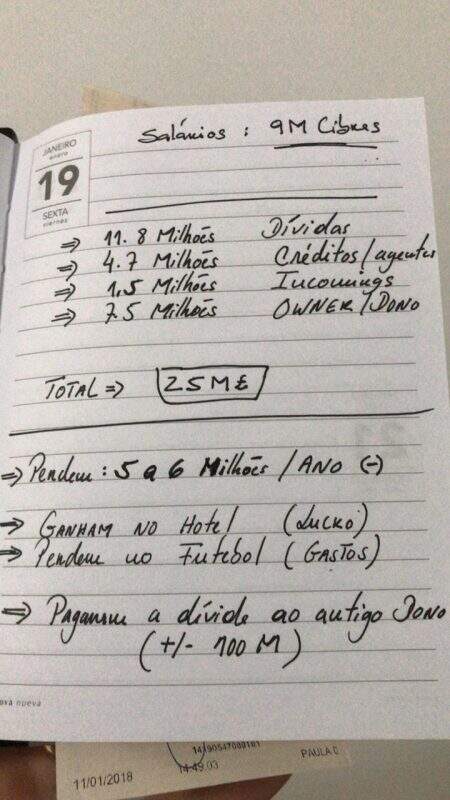 JANEIRO
enero
19
SEXTA
viernes
Salários : 9M Libras
⇒ 11.8 Milhões Dívidas
⇒ 4.7 Milhões Créditos/agentes
⇒ 1,5 Milhões Incomings
⇒ 7.5 Milhões OWNER/DONO
TOTAL ⇒ 25M£
⇒ Perdem : 5 a 6 Milhões /ANO (-)
⇒ GANHAM NO HOTEL (LUCRO)
⇒ Perdem no Futebol (GASTOS)
⇒ Pagaram a dívida ao antigo DONO
(+/- 100 M)
nueva
14:49:03
PAULA C
11/01/2018